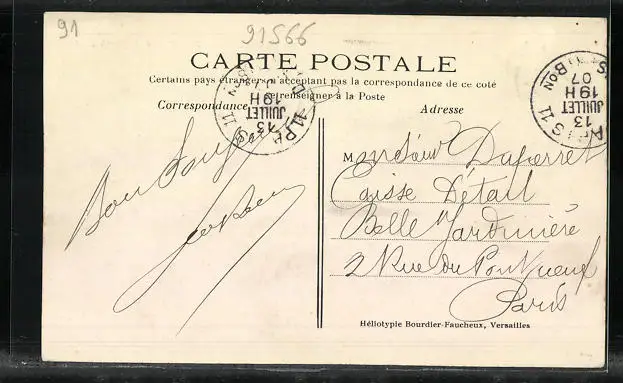 91
91566
CARTE POSTALE
Certains pays étrangers n'acceptant pas la correspondance de ce coté
se renseigner à la Poste
Correspondance
Adresse
PARIS 11
13
JUILLET
19H
PARIS 11
19H
JUILLET
13
07
Bon
Monsieur Duperret
Caisse Détail
Belle Jardinière
2 Rue du Pont Neuf
Paris
Héliotypie Bourdier-Faucheux, Versailles